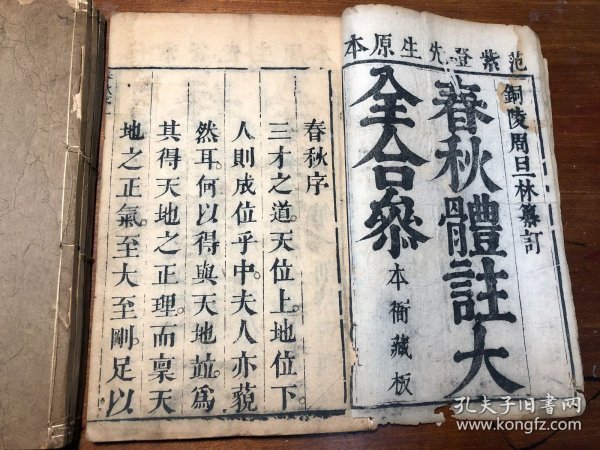 范紫登先生原本
銅陵周旦林纂訂
春秋體註大
全合參
本衙藏板
春秋序
三才之道天位上地位下
人則成位乎中夫人亦藐
然耳何以得與天地並為
其得天地之正理而稟天
地之正氣至大至剛足以
孔夫子旧书网
www.kongfz.com